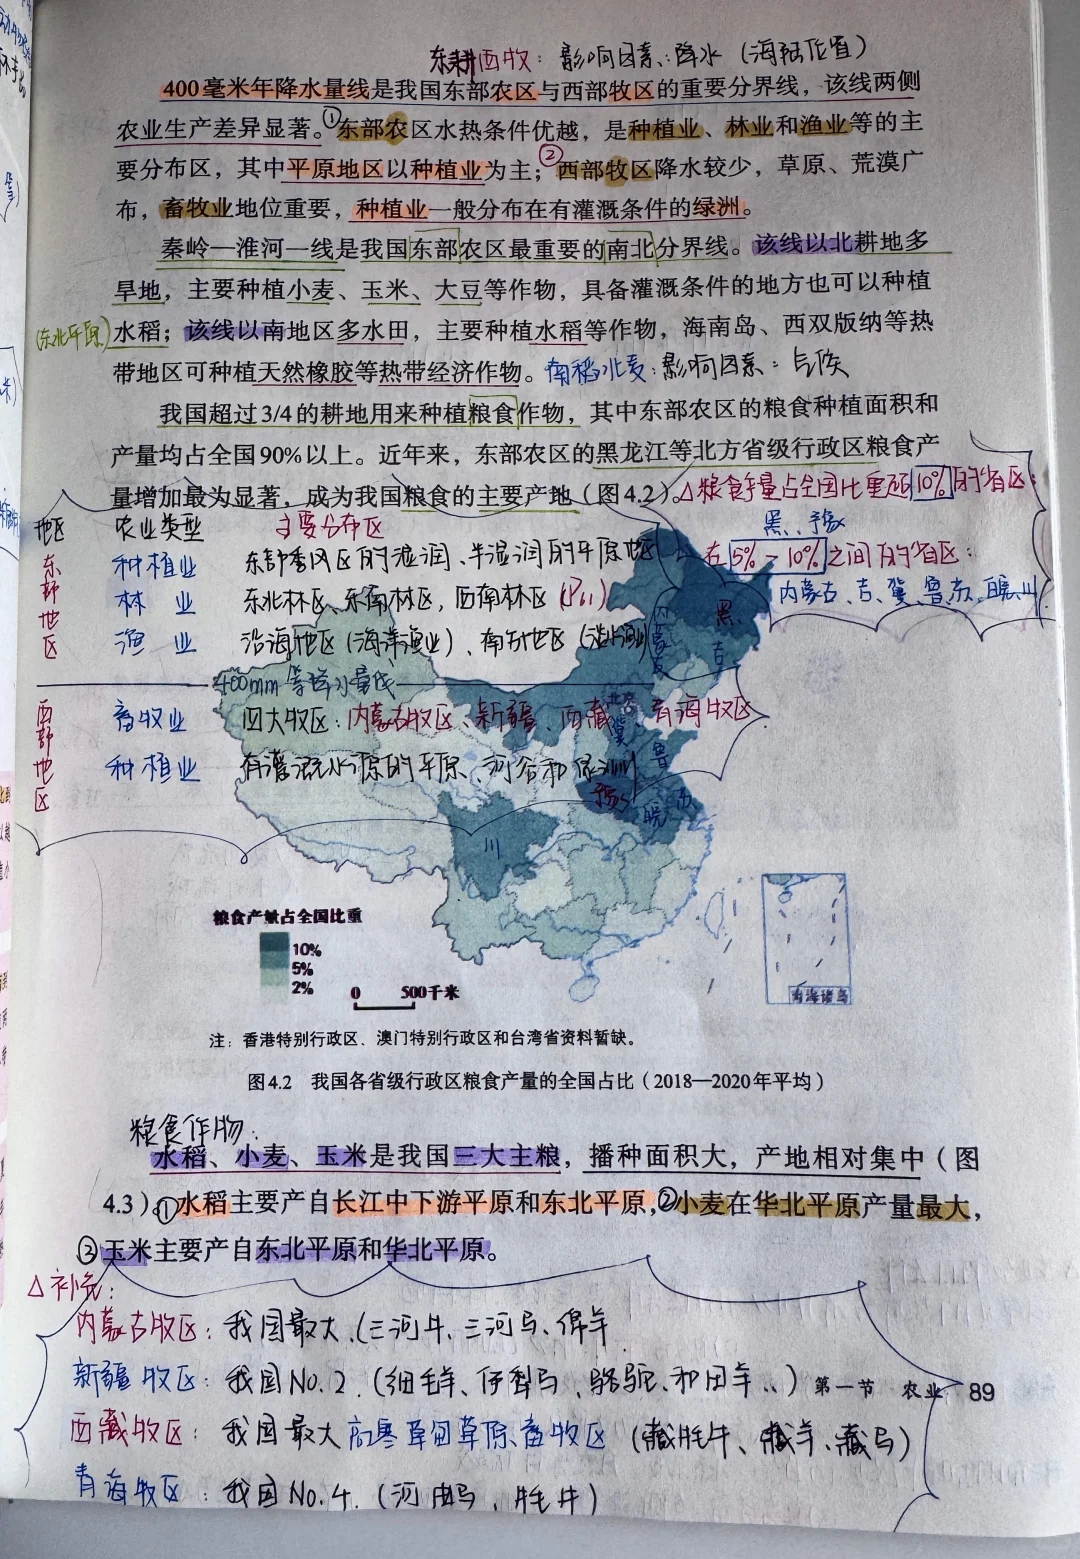 东耕西牧：影响因素：降水（海陆位置）
400毫米年降水量线是我国东部农区与西部牧区的重要分界线，该线两侧
农业生产差异显著。①东部农区水热条件优越，是种植业、林业和渔业等的主
要分布区，其中平原地区以种植业为主；②西部牧区降水较少，草原、荒漠广
布，畜牧业地位重要，种植业一般分布在有灌溉条件的绿洲。
秦岭—淮河一线是我国东部农区最重要的南北分界线。该线以北耕地多
旱地，主要种植小麦、玉米、大豆等作物，具备灌溉条件的地方也可以种植
(东北平原)水稻；该线以南地区多水田，主要种植水稻等作物，海南岛、西双版纳等热
带地区可种植天然橡胶等热带经济作物。南稻北麦：影响因素：气候
我国超过3/4的耕地用来种植粮食作物，其中东部农区的粮食种植面积和
产量均占全国90%以上。近年来，东部农区的黑龙江等北方省级行政区粮食产
量增加最为显著，成为我国粮食的主要产地（图4.2）。△粮食产量占全国比重超10%的省区：
黑、豫
在5%-10%之间的省区：
内蒙古、吉、冀、鲁、苏、皖、川
地区 农业类型 主要分布区
东部地区
种植业 东部季风区的湿润、半湿润的平原地区
林业 东北林区、东南林区，西南林区
渔业 沿海地区（海洋渔业）、南方地区
400mm等降水量线
西部地区
畜牧业 四大牧区：内蒙古牧区、新疆、西藏、青海牧区
种植业 有灌溉水源的平原、河谷和绿洲
黑
吉
内蒙古
北京
冀
鲁
豫
皖
苏
川
粮食产量占全国比重
10%
5%
2%
0 500千米
南海诸岛
注：香港特别行政区、澳门特别行政区和台湾省资料暂缺。
图4.2 我国各省级行政区粮食产量的全国占比（2018—2020年平均）
粮食作物：
水稻、小麦、玉米是我国三大主粮，播种面积大，产地相对集中（图
4.3）。①水稻主要产自长江中下游平原和东北平原，②小麦在华北平原产量最大，
③玉米主要产自东北平原和华北平原。
△补充：
内蒙古牧区：我国最大.(三河牛、三河马、绵羊
新疆牧区：我国No.2.(细毛羊、伊犁马、骆驼、和田羊..)
第一节 农业 89
西藏牧区：我国最大高寒草甸草原畜牧区（藏牦牛、藏羊、藏马）
青海牧区：我国No.4.（河曲马、牦牛）